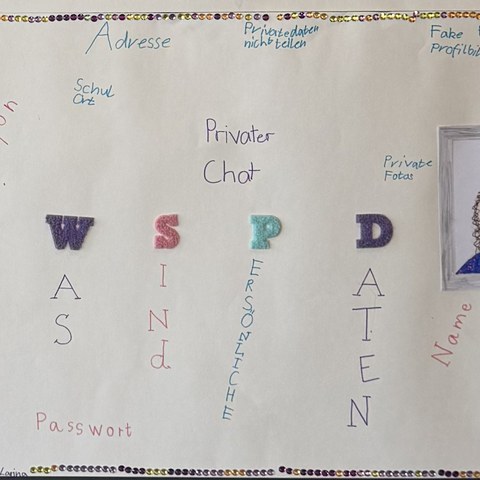 Adresse
Privatedaten
nicht teilen
Fake
Profilbi
Schul
Ort
Privater
Chat
Private
Fotos
WAS
SINd
PERSÖNLICHE
DATEN
Name
Passwort
Larina